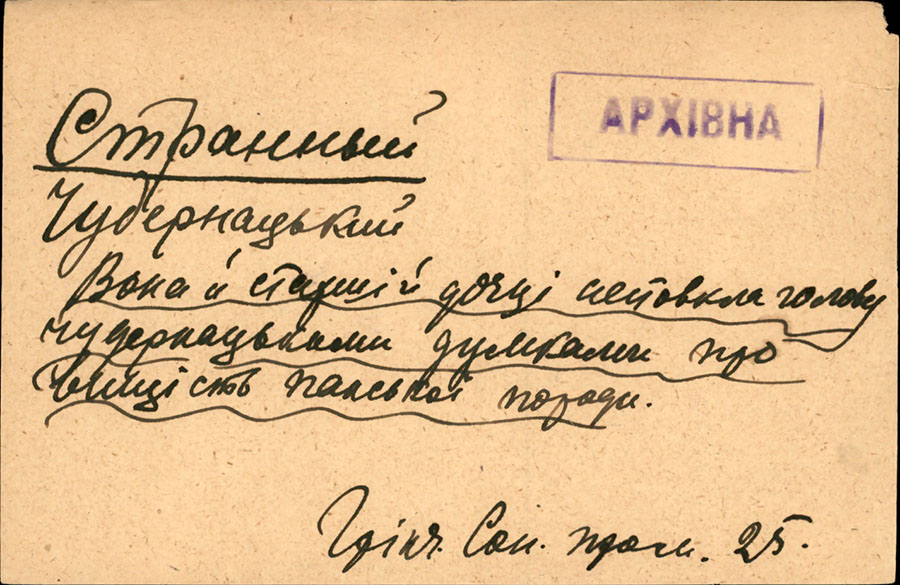 АРХІВНА
Странный
Чудернацький
Вона й старшій дочці натовкла голову
чудернацькими думками про
вищість панської породи.
Грінч. Сон. пром. 25.